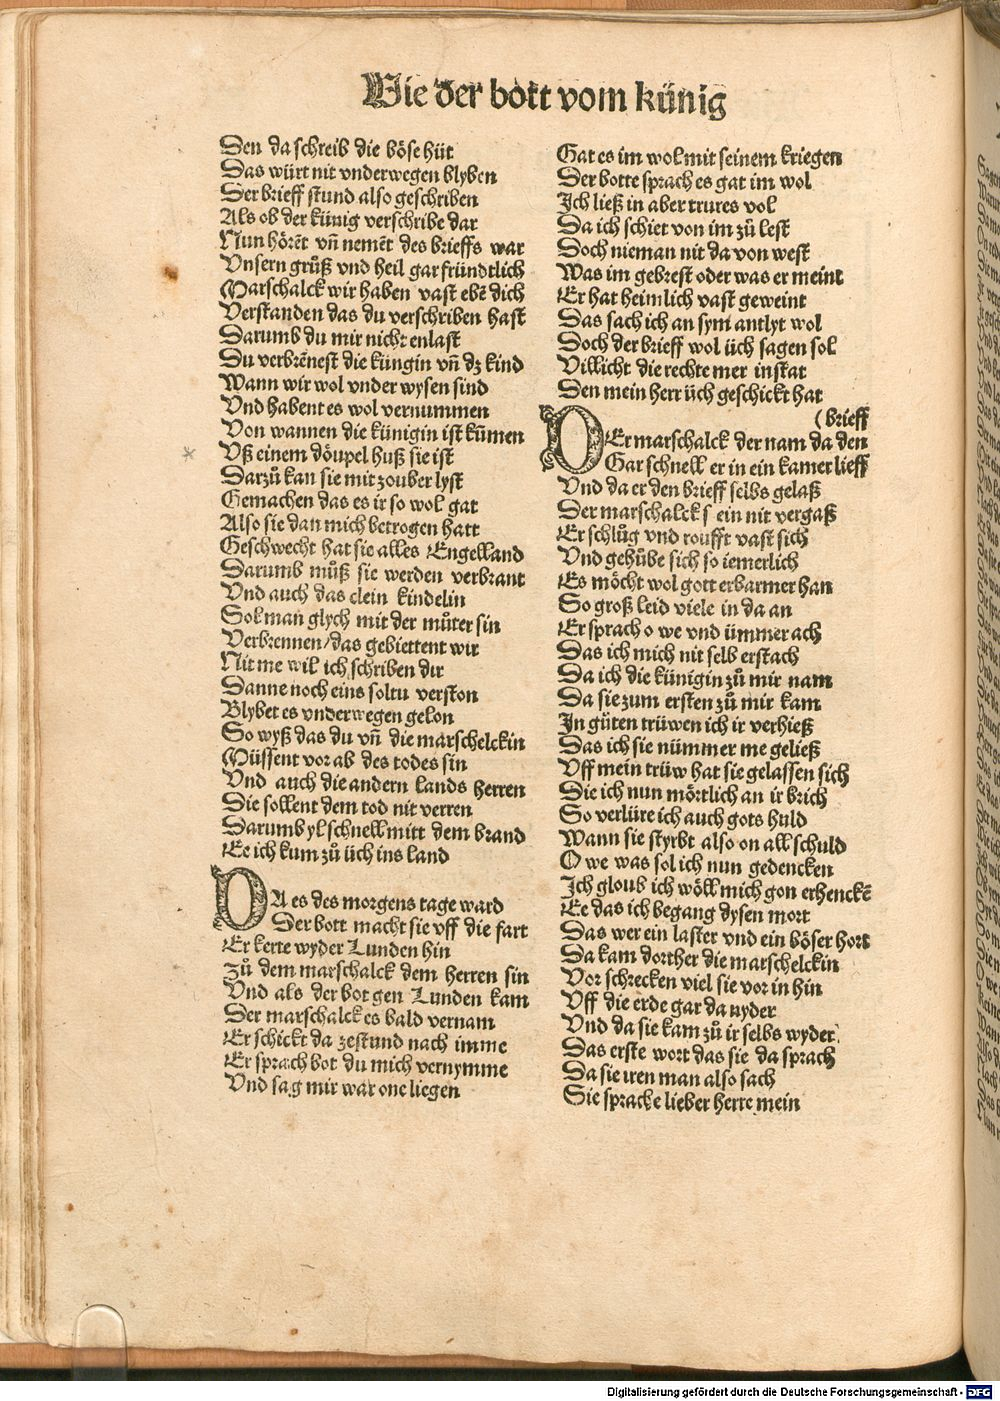 Wie der bott vom künig
Den da schreib die böse hüt
Das würt nit vnderwegen blyben
Der brieff stund also geschriben
Als ob der künig verschribe dar
Nun hörēt vñ nemēt des brieffs war
Vnsern grůß vnd heil gar fründtlich
Marschalck wir haben vast ebē dich
Verstanden das du verschriben hast
Darumb du mir nicht enlast
Du verbrēnest die küngin vñ dz kind
Wann wir wol vnder wysen sind
Vnd habent es wol vernummen
Von wannen die künigin ist kūmen
Vß einem döupel huß sie ist
Darzů kan sie mit zouber lyst
Gemachen das es ir so wol gat
Also sie dan mich betrogen hatt
Geschwecht hat sie alles Engelland
Darumb můß sie werden verbrant
Vnd auch das clein kindelin
Sol man glych mit der můter sin
Verbrennen/das gebiettent wir
Nit me wil ich schriben dir
Danne noch eins soltu verston
Blybet es vnderwegen gelon
So wyß das du vñ die marschelckin
Müssent vor ab des todes sin
Vnd auch die andern lands herren
Die sollent dem tod nit verren
Darumb yl schnell mitt dem brand
Ee ich kum zů üch ins land
DA es des morgens tage ward
Der bott macht sie vff die fart
Er kerte wyder Lunden hin
Zů dem marschalck dem herren sin
Vnd als der bot gen Lunden kam
Der marschalck es bald vernam
Er schickt da zestund nach imme
Er sprach bot du mich vernymme
Vnd sag mir war one liegen
Gat es im wol mit seinem kriegen
Der botte sprach es gat im wol
Ich ließ in aber trures vol
Da ich schiet von im zů lest
Doch nieman nit da von west
Was im gebrest oder was er meint
Er hat heimlich vast geweint
Das sach ich an sym antlyt wol
Doch der brieff wol üch sagen sol
Villicht die rechte mer instat
Den mein herr üch geschickt hat
(brieff
DEr marschalck der nam da den
Gar schnell er in ein kamer lieff
Vnd da er den brieff selbs gelaß
Der marschalck sein nit vergaß
Er schlůg vnd roufft vast sich
Vnd gehůbe sich so iemerlich
Es möcht wol gott erbarmer han
So groß leid viele in da an
Er sprach o we vnd ümmer ach
Das ich mich nit selb erstach
Da ich die künigin zů mir nam
Da sie zum ersten zů mir kam
In güten trüwen ich ir verhieß
Das ich sie nümmer me geließ
Vff mein trüw hat sie gelassen sich
Die ich nun mörtlich an ir brich
So verlüre ich auch gots huld
Wann sie styrbt also on all schuld
O we was sol ich nun gedencken
Ich gloub ich wöll mich gon erhenckē
Ee das ich begang dysen mort
Das wer ein laster vnd ein böser hort
Da kam dorther die marschelckin
Vor schrecken viel sie vor in hin
Vff die erde gar da nyder
Vnd da sie kam zů ir selbs wyder
Das erste wort das sie da sprach
Da sie iren man also sach
Sie sprache lieber herre mein
Digitalisierung gefördert durch die Deutsche Forschungsgemeinschaft - DFG